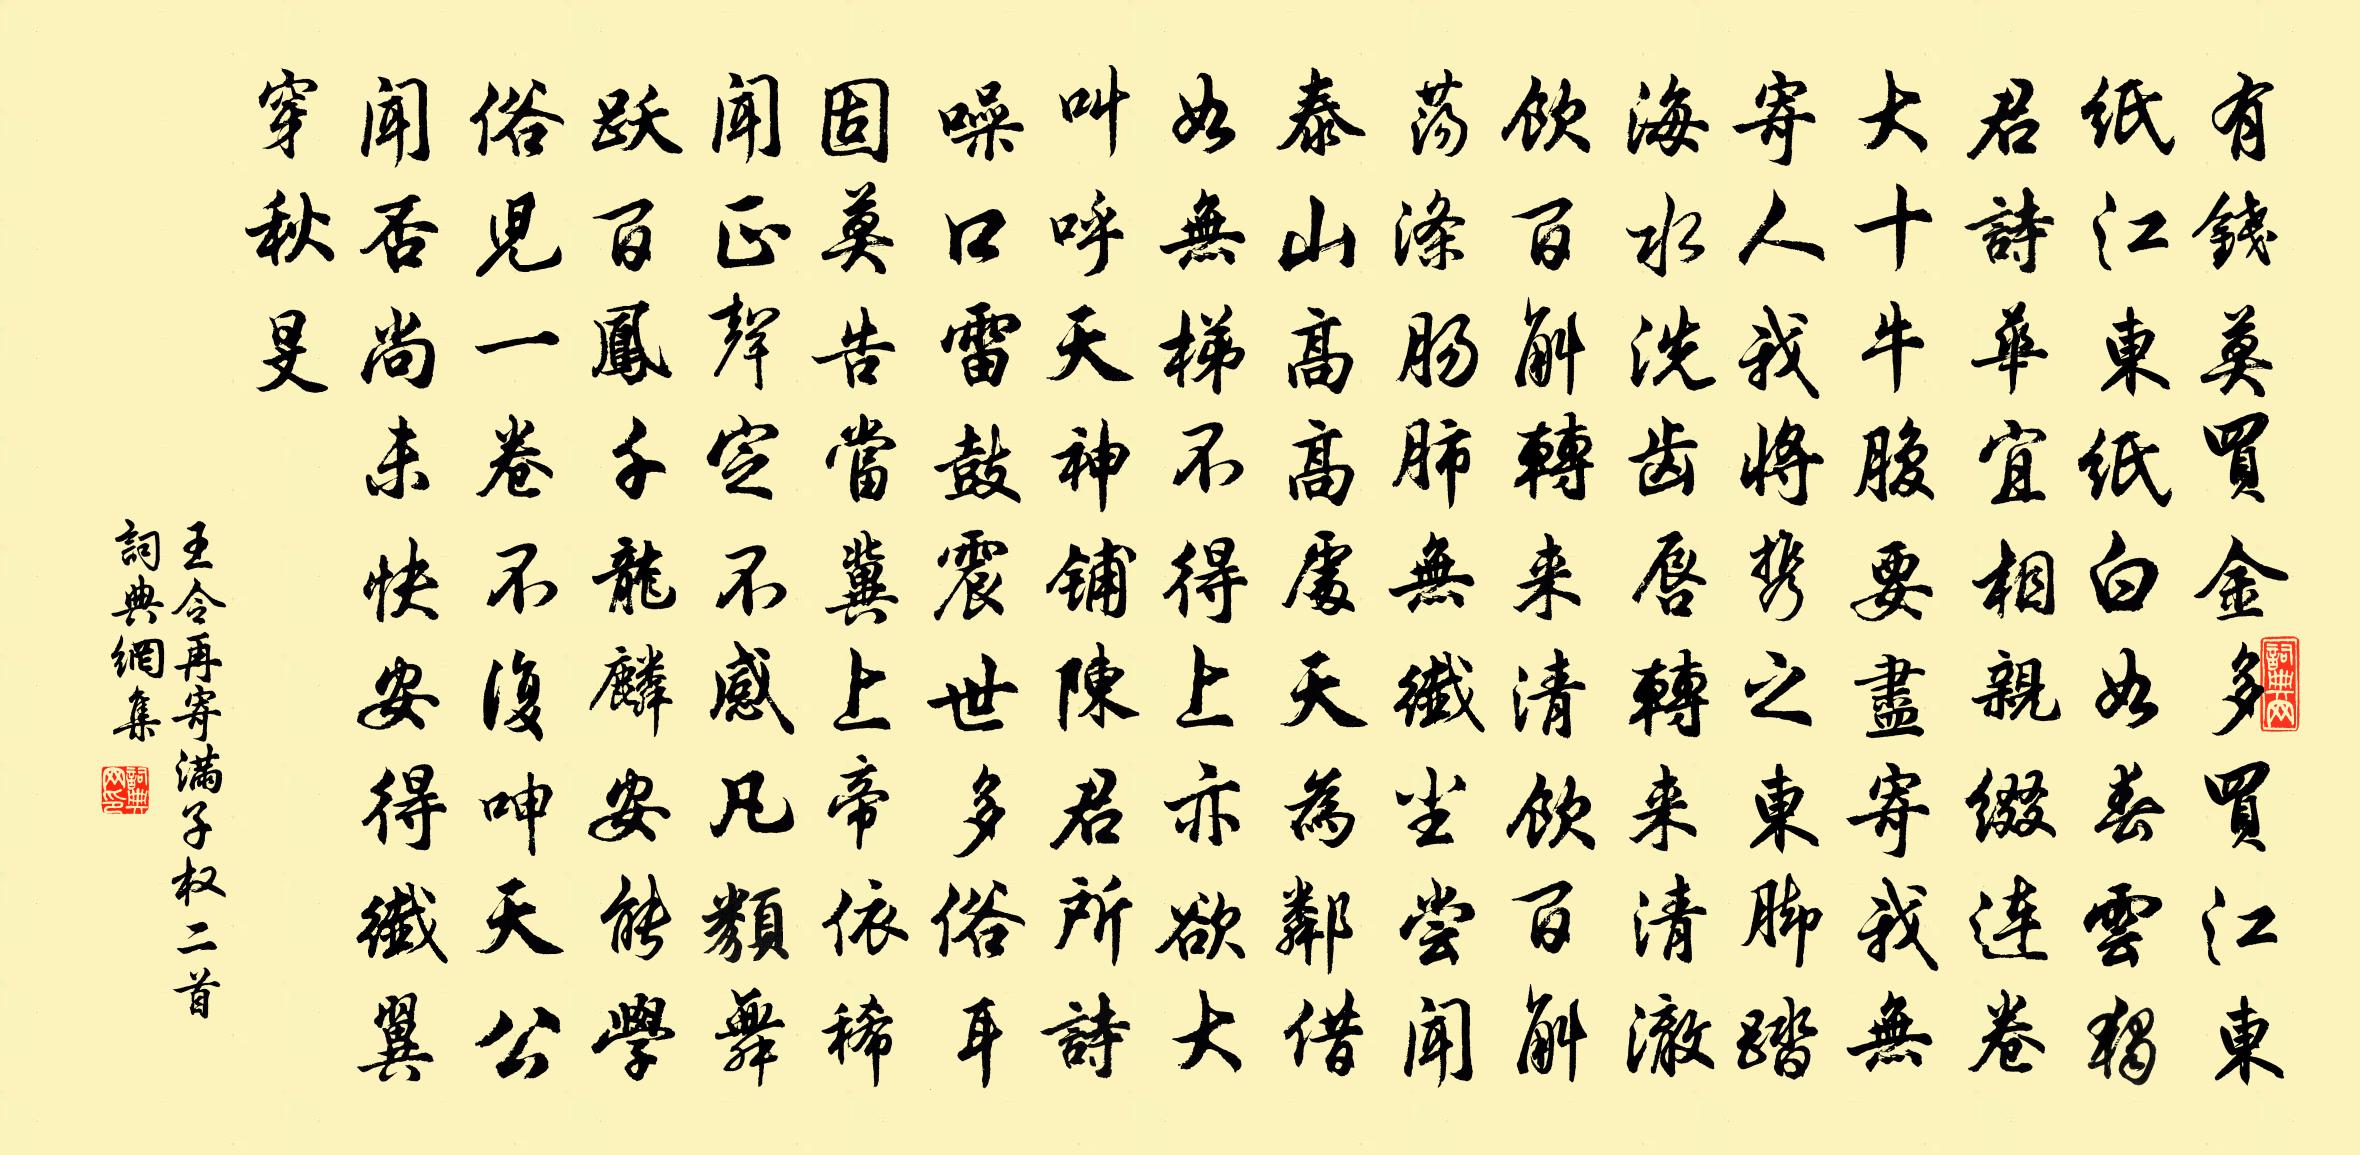 有錢莫買金多買江東
紙江東紙白如春雲獨
君詩華宜相親綴連卷
大十牛腹要盡寄我無
寄人我將携之東脚踏
海水洗齒唇轉来清澈
飲百斛轉来清飲百斛
荡滌肠肺無纖尘尝闻
泰山高高處天為鄰借
如無梯不得上亦欲大
叫呼天神铺陳君所詩
噪口雷鼓震世多俗耳
固莫告當冀上帝依稀
闻正聲定不感凡類舞
跃百鳳千龍麟安能學
俗児一卷不復呻天公
闻否尚未快安得纖翼
穿秋旻
王令再寄满子权二首
詞典網集
詞典网
詞典网印